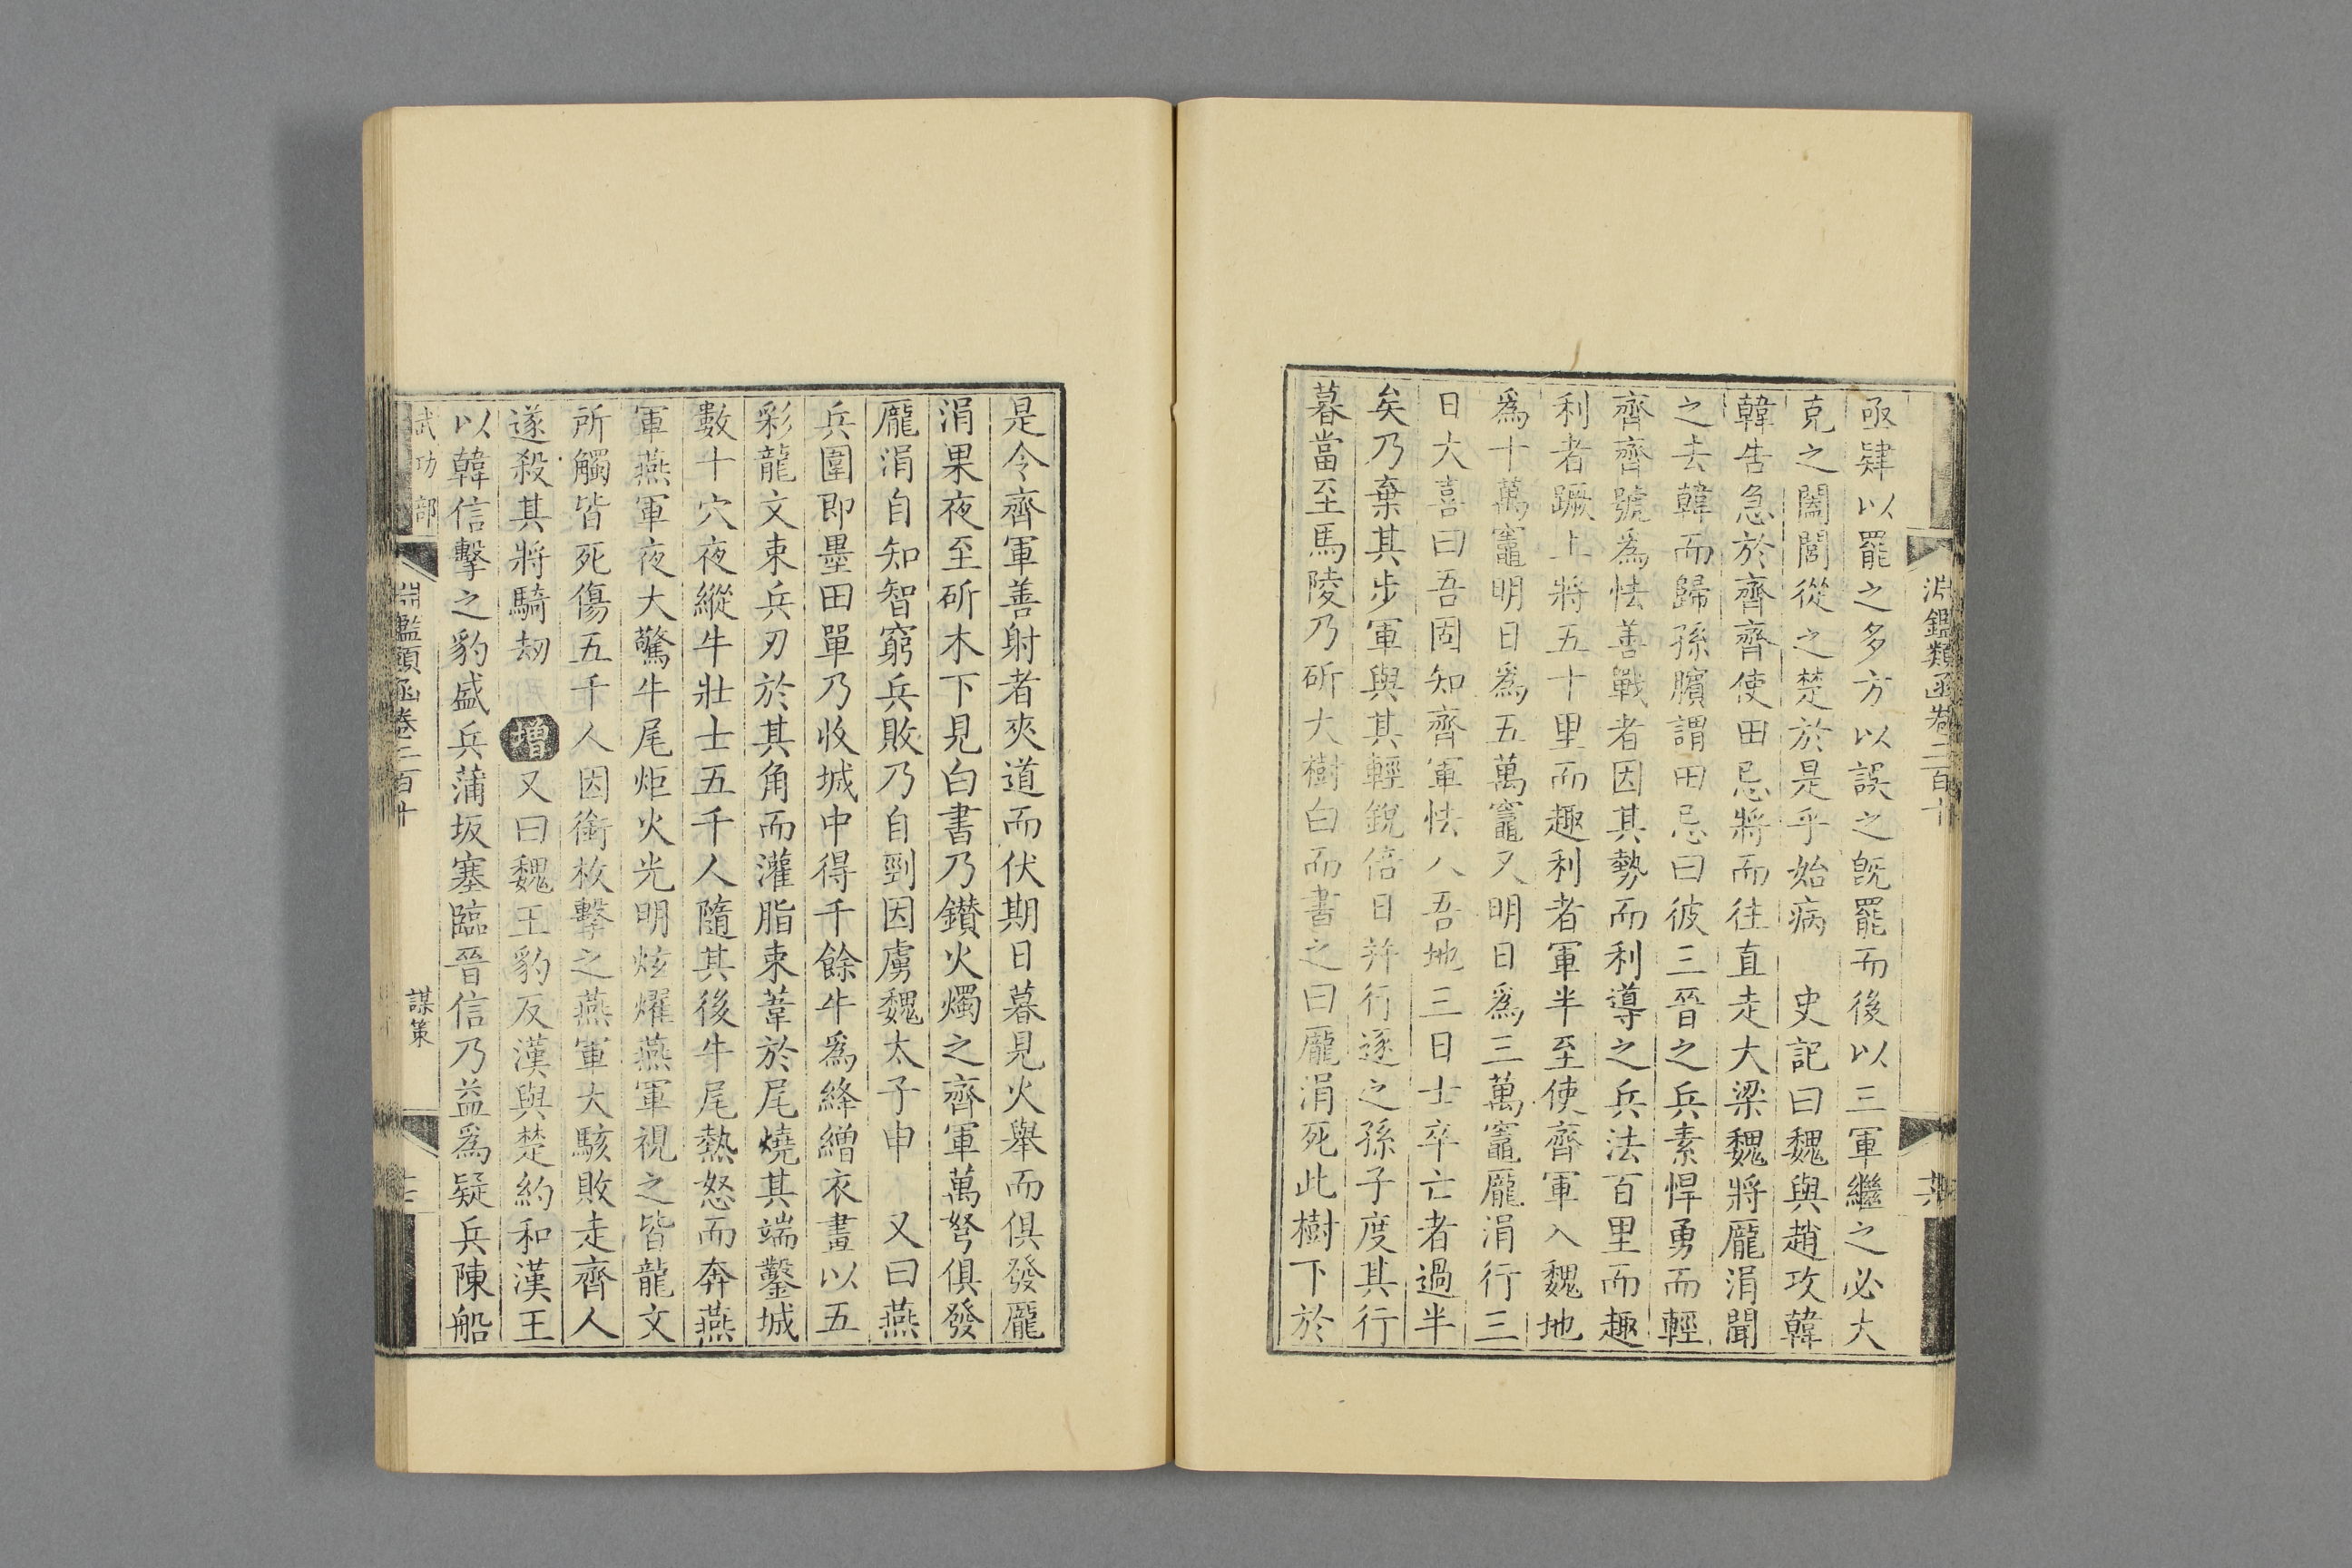 淵鑑類函卷二百十
亟肄以罷之多方以誤之旣罷而後以三軍繼之必大
克之闔閭從之楚於是乎始病 史記曰魏與趙攻韓
韓告急於齊齊使田忌將而往直走大梁魏將龐涓聞
之去韓而歸孫臏謂田忌曰彼三晉之兵素悍勇而輕
齊齊號爲怯善戰者因其勢而利導之兵法百里而趣
利者蹶上將五十里而趣利者軍半至使齊軍入魏地
爲十萬竈明日爲五萬竈又明日爲三萬竈龐涓行三
日大喜曰吾固知齊軍怯入吾地三日士卒亡者過半
矣乃棄其步軍與其輕銳倍日幷行逐之孫子度其行
暮當至馬陵乃斫大樹白而書之曰龐涓死此樹下於
是令齊軍善射者夾道而伏期日暮見火舉而俱發龐
涓果夜至斫木下見白書乃鑚火燭之齊軍萬弩俱發
龐涓自知智窮兵敗乃自剄因虜魏太子申 又曰燕
兵圍即墨田單乃收城中得千餘牛爲絳繒衣畫以五
彩龍文束兵刃於其角而灌脂束葦於尾燒其端鑿城
數十穴夜縱牛壯士五千人隨其後牛尾熱怒而奔燕
軍燕軍夜大驚牛尾炬火光明炫燿燕軍視之皆龍文
所觸皆死傷五千人因銜枚擊之燕軍大駭敗走齊人
遂殺其將騎刼 增又曰魏王豹反漢與楚約和漢王
以韓信擊之豹盛兵蒲坂塞臨晉信乃益爲疑兵陳船
武功部
淵鑑類函卷二百十
謀策